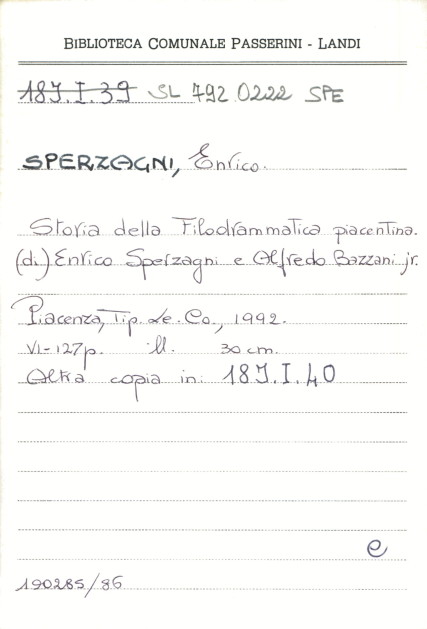 BIBLIOTECA COMUNALE PASSERINI - LANDI
18J.I.39 SL 792.0222 SPE
SPERZAGNI, Enrico.
Storia della Filodrammatica piacentina.
(di) Enrico Sperzagni e Alfredo Bazzani jr.
Piacenza, Tip. Le. Co., 1992.
VI-127 p. Ill. 30 cm.
Altra copia in: 18J.I.40
e
190285/86